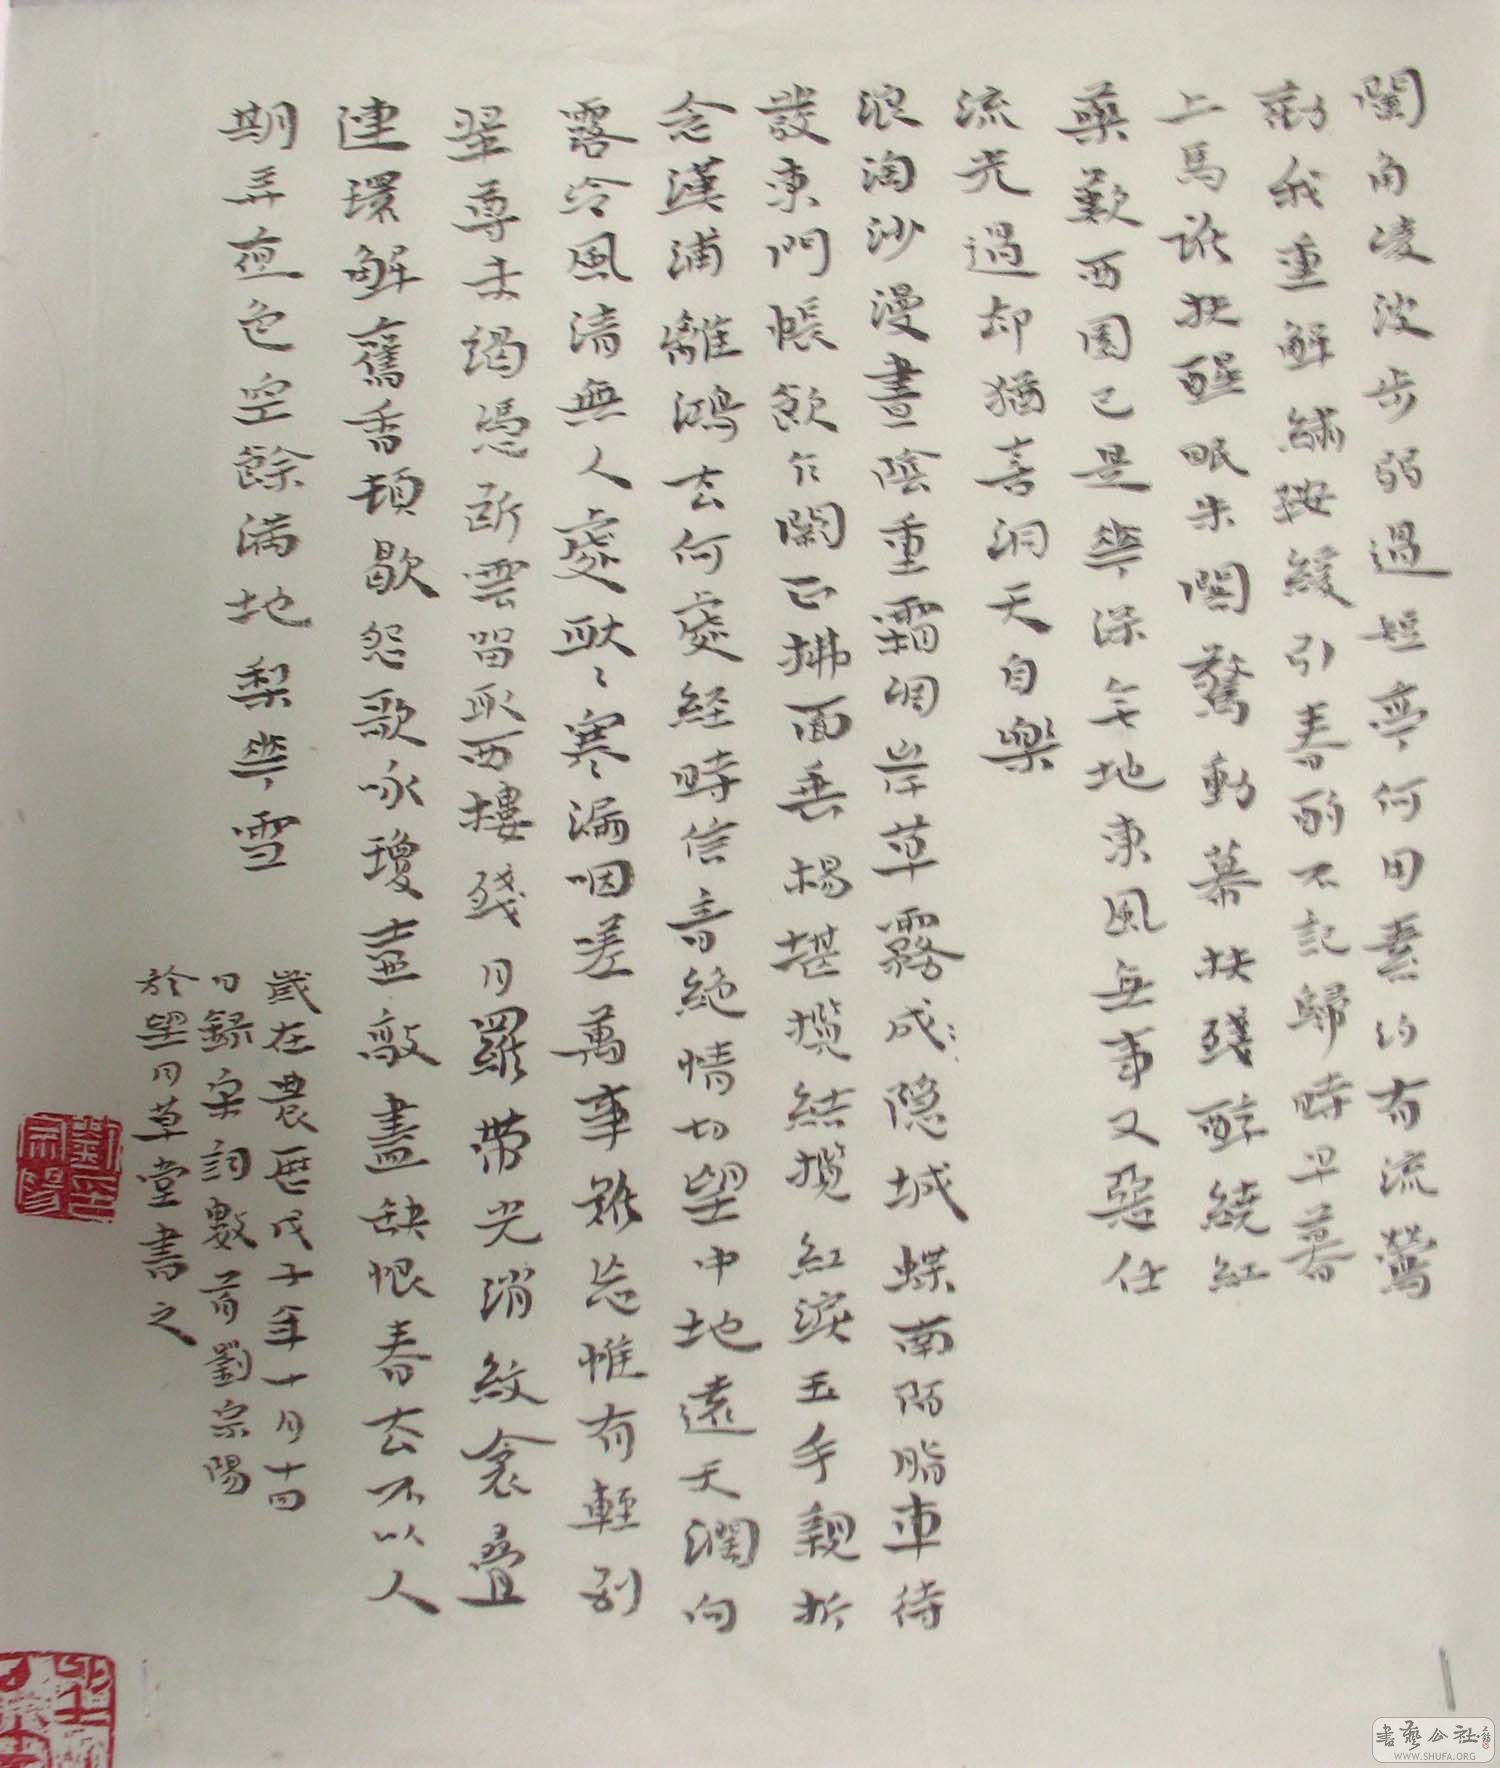 闌角凌波步弱過短亭何用素約有流鶯
勸我重解繡鞍緩引春酌不記歸時早暮
上馬誰扶醒眠朱閣驚動幕扶殘醉繞紅
藥歎西園已是華深無地東風無事又惡任
流光過却猶喜洞天自樂
浪淘沙漫晝陰重霜凋岸草霧成隱城堞南陌脂車待
發東門帳飲乍闋正拂面垂楊堪攬結攬紅淚玉手親折
念漢浦離鴻去何處經時信音絕情切望中地遠天濶向
露冷風清無人處耿耿寒漏咽嗟萬事難忘惟有輕別
翠尊未竭憑斷雲留取西樓殘月羅帶光消紋衾疊
連環解舊香頓歇怨歌詠瓊壺敲盡缺恨春去不以人
期弄夜色空餘滿地梨華雪
歲在農历戊子年十月十四
日錄宋詞數首劉宗陽
於望月草堂書之
書藝公社
WWW.SHUFA.ORG